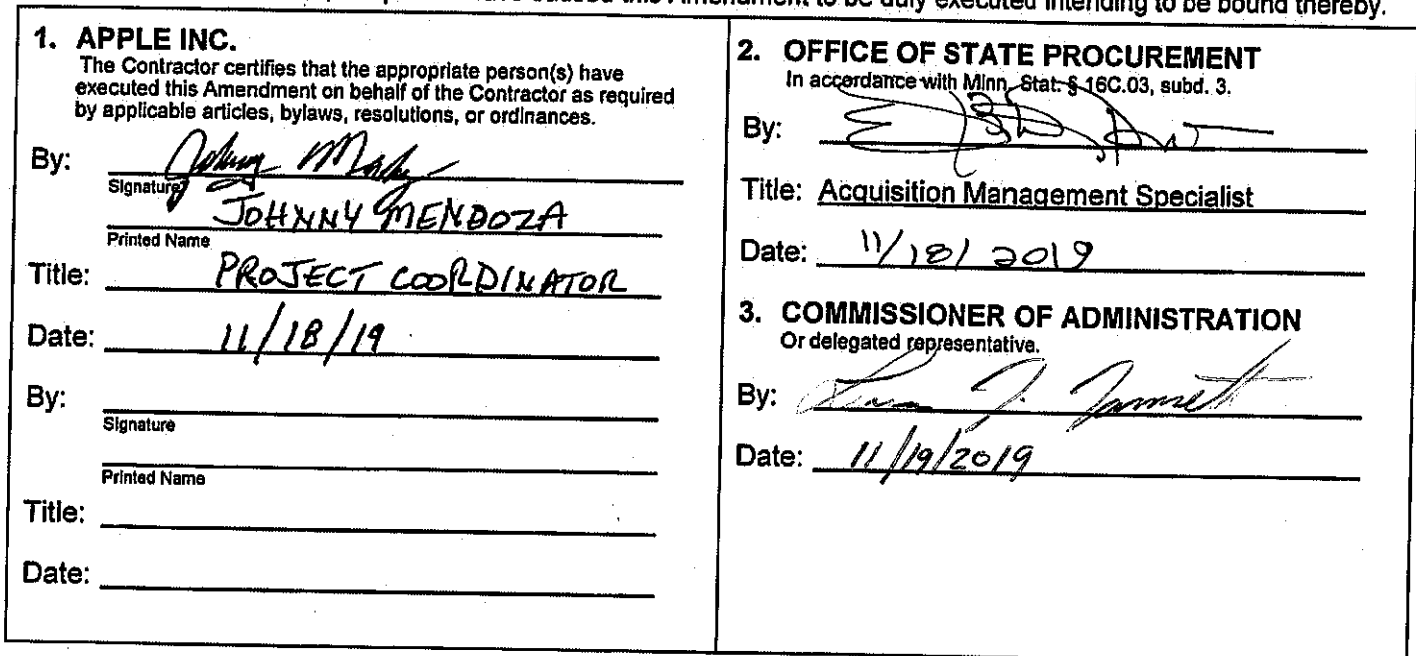 Amendment to be duly executed intending to be bound thereby.
1. APPLE INC.
The Contractor certifies that the appropriate person(s) have
executed this Amendment on behalf of the Contractor as required
by applicable articles, bylaws, resolutions, or ordinances.
By:
Signature
JOHNNY MENDOZA
Printed Name
Title: PROJECT COORDINATOR
Date: 11/18/19
By:
Signature
Printed Name
Title:
Date:
2. OFFICE OF STATE PROCUREMENT
In accordance with Minn. Stat. § 16C.03, subd. 3.
By:
Title: Acquisition Management Specialist
Date: 11/18/2019
3. COMMISSIONER OF ADMINISTRATION
Or delegated representative.
By:
Date: 11/19/2019